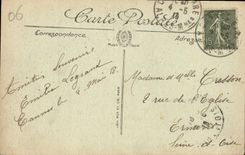 06
Carte Postale
Correspondance
Adresse
Amities Souvenirs
Emilie Legrand
Cannes le 4 Mai 18
Madame et Melle Cresson
2 rue de l'Eglise
Ermont
Seine et Oise